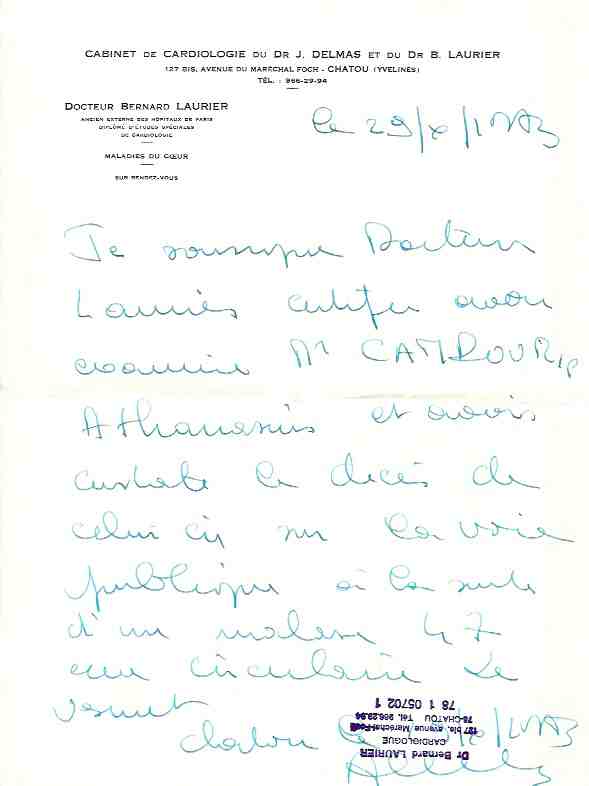 CABINET DE CARDIOLOGIE DU DR J. DELMAS ET DU DR B. LAURIER
127 BIS, AVENUE DU MARÉCHAL FOCH - CHATOU (YVELINES)
TÉL. : 966-29-94
DOCTEUR BERNARD LAURIER
ANCIEN EXTERNE DES HÔPITAUX DE PARIS
DIPLÔME D'ÉTUDES SPÉCIALES
DE CARDIOLOGIE
MALADIES DU CŒUR
SUR RENDEZ-VOUS
le 29/
Je soussigne Docteur
Laurier certifie avoir
examine Mr
Athanasius et avoir
constate le deces de
celui ci sur la voie
publique a la suite
d'un malaise 47
rue circulaire Le
Vesinet
Chatou le
Dr Bernard LAURIER
CARDIOLOGUE
127 bis, avenue Maréchal-Foch
78-CHATOU Tél. 966.29.94
78 1 05702 1